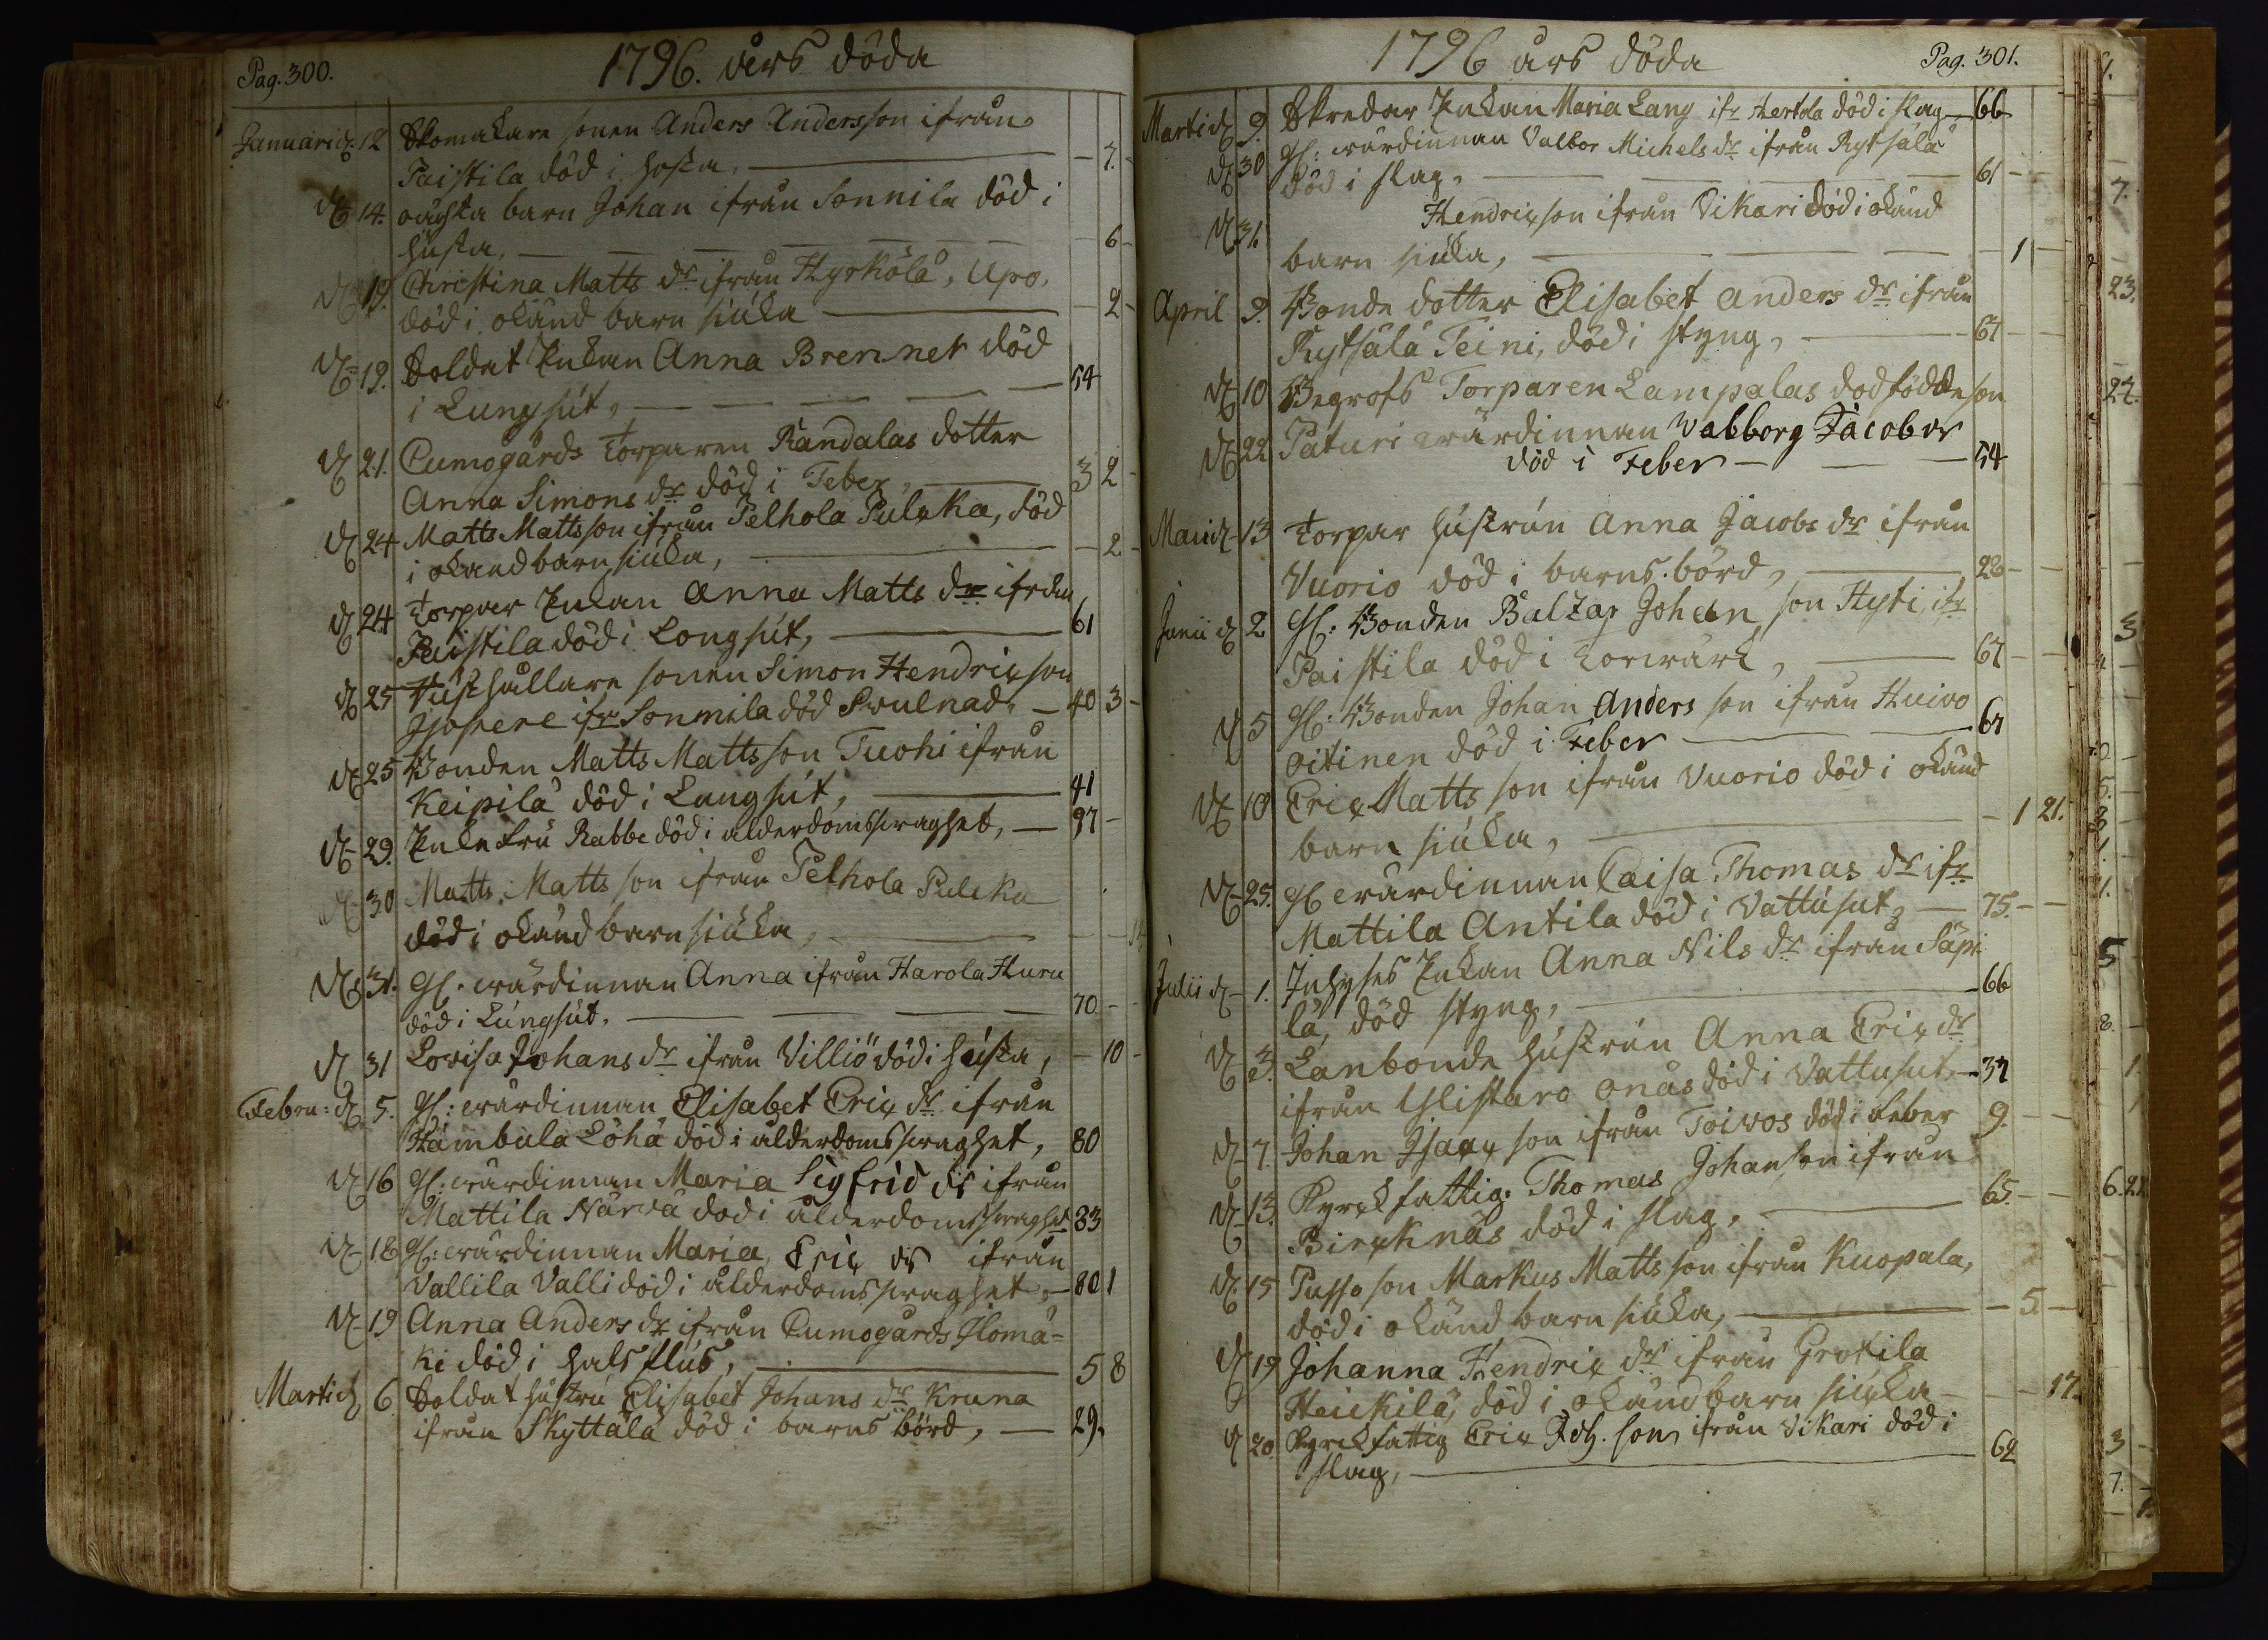 Pag. 300.
1796. års döda
Januari d. 12 Skomakare sonen Anders Andersson ifrån
Paistila död i hosta, — 7.
d. 14. oägta barn Johan ifrån Sonnila död i
husta, — 6
d. 19. Christina Matts dr ifrån Hyrkölä, Upo,
död i okänd barn siuka — 2
d. 19. Soldat Enkan Anna Brenner död
i Lungsut, — 54
d. 21. Cumogårds torparen Randalas dotter
Anna Simons dr död i Feber, — 3 2
d. 24 Matts Mattsson ifrån Pelhola Pulcka, död
i okand barn siuka, — 2
d. 24 torpar Enkan Anna Matts dr ifrån
Paistila död i Longsut, — 61
d. 25 Hushållare sonen Simon Hendricson
Isopere ifr Sonnila död Swulnad, — 40 3
d. 25 Bonden Matts Mattsson Tuohi ifrån
Keipilä död i Lungsut, — 41
d. 29. Enkefru Rabbe död i alderdomsswaghet, — 97
d. 30 Matts Matts son ifrån Pelhola Pulcka
död i okänd barn siuka, — 14
d. 31. Gl. wärdinnan Anna ifrån Harola Huru
död i Lungsut. — 70
d. 31 Lovisa Johans dr ifrån Villiö död i husta, — 10
Febru: d. 5. Gl: wärdinnan Elisabet Eric dr ifrån
Hambula Löhä död i ålderdomsswaghet, 80
d. 16 Gl: wärdinnan Maria Sigfrid dr ifrån
Mattila Närvä död i ålderdomsswaghet 83
d. 18 Gl: wärdinnan Maria Eric dr ifrån
Vallila Valli död i ålderdomsswaghet, — 80 1
d. 19 Anna Anders dr ifrån Cumogårds Ilomä-
ki död i halsflus, — 5 8
Marti d. 6. Soldat hustru Elisabet Johans dr Kruna
ifrån Skyttälä död i barns börd, — 29.
1796 års döda
Pag. 301.
Marti d. 9. Skredar Enkan Maria Lang ifr Hertola död i slag — 66
d. 30 Gl: wärdinnan Valbor Michels dr ifrån Rytsälä
död i slag, — 61
d. 31. Hendricson ifrån Vikari död i okänd
barn siuka, — 1
April 9. Bonde dotter Elisabet Anders dr ifrån
Rytsälä Teini, död i styng, — 67
d. 10 Begrofs Torparen Lampalas dödfödde son
d. 22 Paturi wärdinnan Valborg Jacobs dr
död i Feber — 54
Maii d. 13 torpar hustrun Anna Jacobs dr ifrån
Vuorio död i barns börd, — 28
Junii d. 2 Gl: Bonden Baltzar Johan son Hyti, ifr
Paistila död i torrwärk, — 67
d. 5 Gl: Bonden Johan Anders son ifrån Huivo
oitinen död i Feber — 67
d. 18 Eric Matts son ifrån Vuorio död i okänd
barn siuka, — 1 21.
d. 25. Gl wärdinnan Caisa Thomas dr ifr
Mattila Antila död i Vattusut, — 75.
Julii d. 1. Inhyses Enkan Anna Nils dr ifrån Säpi-
lä, död styng, — 66
d. 3. Lanbonde hustrun Anna Eric dr
ifrån Ylistaro onäs död i Vattusut, — 37
d. 7. Johan Isacs son ifrån Toivos död i Feber 9.
d. 13. Kyrckfattig. Thomas Johanson ifrån
Bircknäs död i slag, — 65.
d. 15 Pusso son Markus Matts son ifrån Kuopala,
död i okänd barn siuka, — 5.
d. 19 Johanna Hendric dr ifrån Grotila
Heickilä, död i okänd barn siucka — 17.
d. 20. Kyrckfattig Eric Joh. son ifrån Vikari död i
slag, — 62